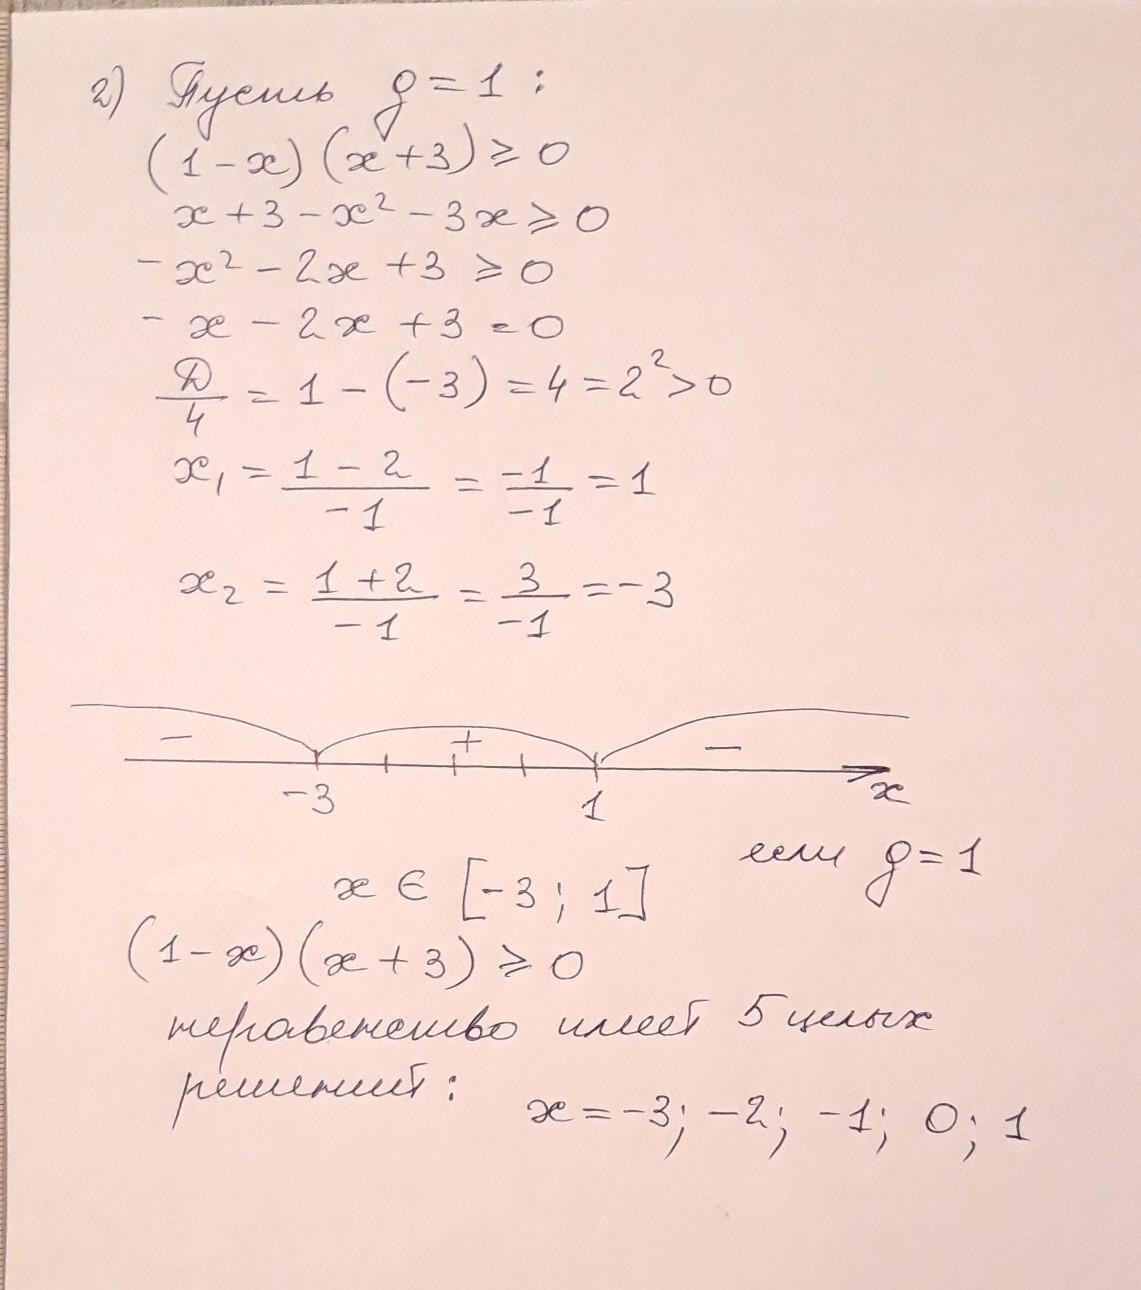 2) Пусть g = 1 :
(1 - x) (x + 3) ≥ 0
x + 3 - x² - 3x ≥ 0
- x² - 2x + 3 ≥ 0
- x - 2x + 3 = 0
Д/4 = 1 - (-3) = 4 = 2² > 0
x₁ = (1 - 2)/(-1) = (-1)/(-1) = 1
x₂ = (1 + 2)/(-1) = 3/(-1) = -3
- + -
-3 1 x
если g = 1
x ∈ [-3 ; 1]
(1 - x) (x + 3) ≥ 0
неравенство имеет 5 целых
решений :
x = -3; -2; -1; 0; 1